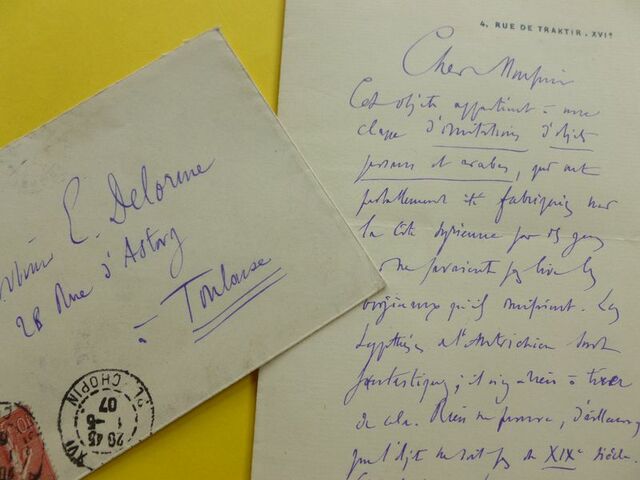 4, RUE DE TRAKTIR . XVIᵉ
Cher Monsieur
Cet objet appartient à une
classe d'imitations d'objets
persans et arabes, qui ont
probablement été fabriqués sur
la Côte syrienne par des gens
ne savaient pas lire les
originaux qu'ils imitaient. Les
hypothèses de l'Autrichien sont
fantastiques ; il n'y a rien à tirer
de cela. Rien ne prouve, d'ailleurs,
que l'objet ne soit pas du XIXᵉ siècle.
E. Delorme
28 Rue d'Astorg
à Toulouse
PL. CHOPIN
XVI
20 45
1 - 6
07